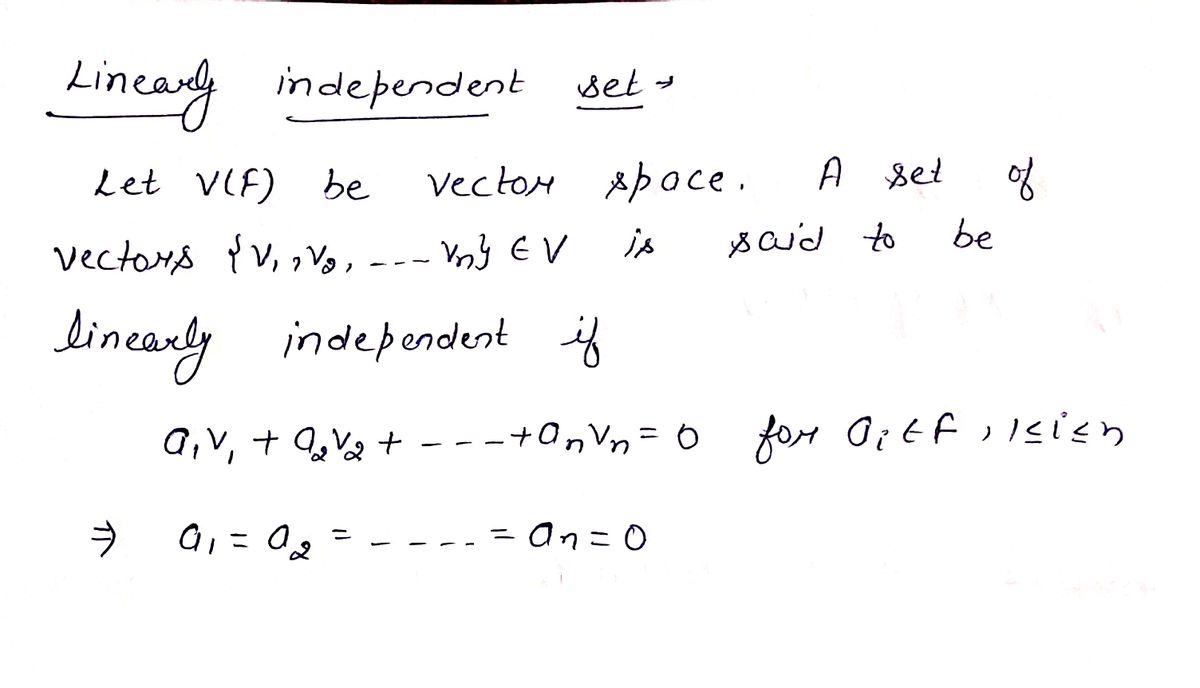 Linearly independent set →
Let V(F) be vector space. A set of
vectors {v₁, v₂, ---- vₙ} ∈ V is said to be
linearly independent if
a₁v₁ + a₂v₂ + ---+ aₙvₙ = 0 for aᵢ ∈ F, 1≤i≤n
⇒ a₁ = a₂ = ----- = aₙ = 0